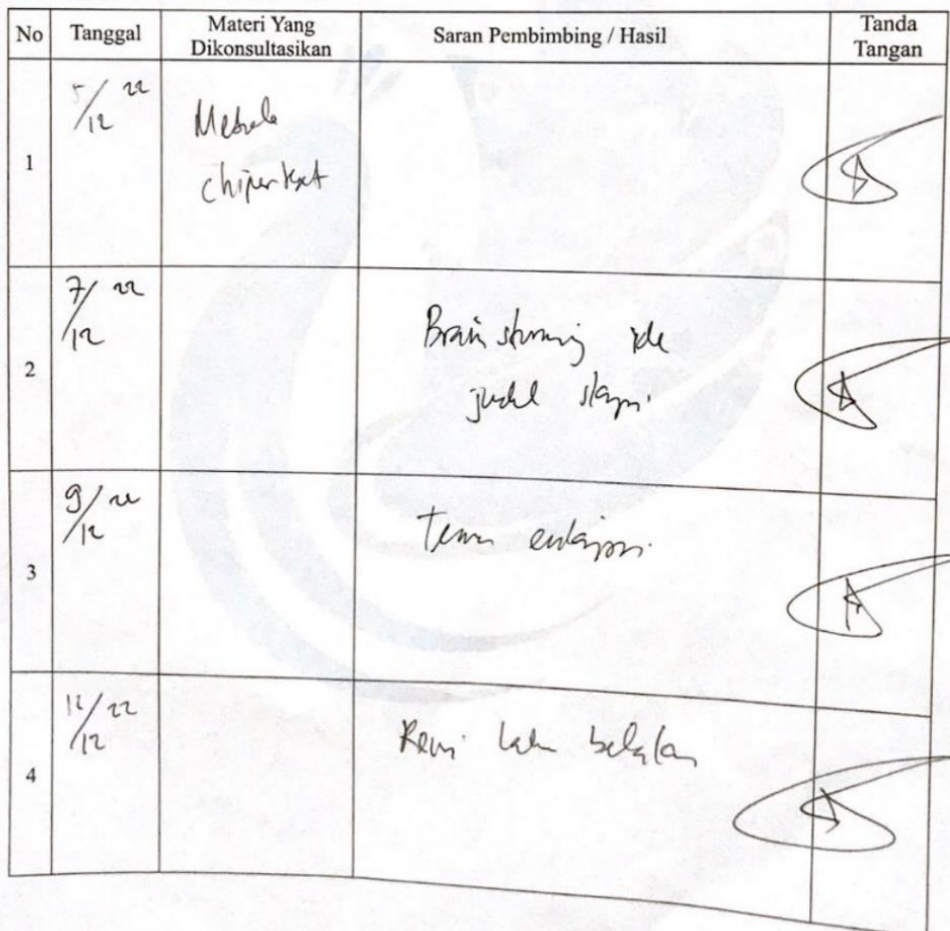 No Tanggal Materi Yang Dikonsultasikan Saran Pembimbing / Hasil Tanda Tangan
1 5/12 22 chipertext
2 7/12 22 Brainstorming ide
judul skripsi.
3 9/12 22 enkripsi.
4 12/12 22 Revisi latar belakang